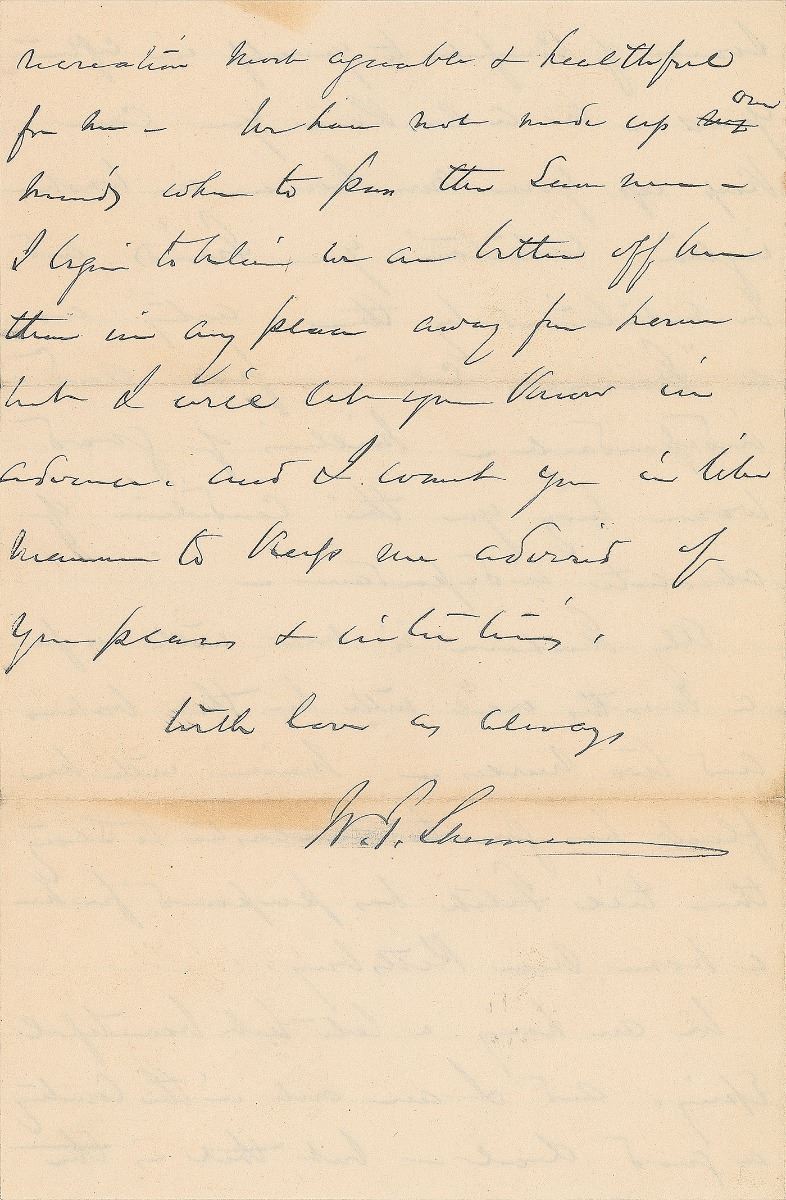 recreation most agreeable & healthful
for me - We have not made up my our
minds where to pass the Summer -
I begin to believe we are better off here
than in any place away from home
but I will let you Know in
advance. and I want you in like
manner to Keep me advised of
your plans & intentions.
With love as always
W. T. Sherman